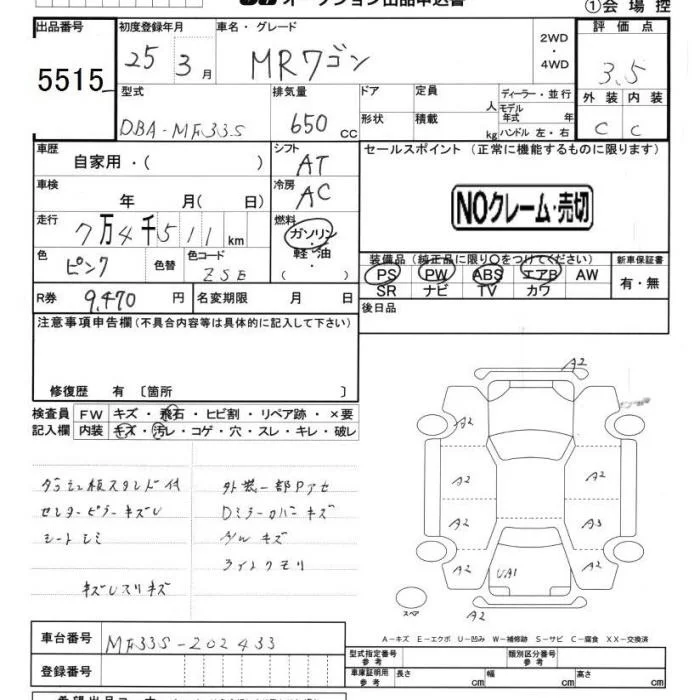 オークション出品申込書
①会 場 控
出品番号
5515
初度登録年月
25 3月
車名・グレード
MRワゴン
2WD
・
4WD
評 価 点
3.5
外 装 内 装
C C
型式
DBA-MF33S
排気量
650 CC
ドア
定員
人
形状
積載
kg
ディーラー・並行
モデル年式 年
ハンドル 左・右
車歴
自家用・( )
シフト
AT
セールスポイント (正常に機能するものに限ります)
NOクレーム・売切
車検
年 月( 日)
冷房
AC
走行
7万4千511km
燃料
ガソリン
・
軽・油
( )
色
ピンク
色替
色コード
ZSE
装備品(純正品に限り○をつけてください)
PS PW ABS エアB AW
SR ナビ TV カワ
新車保証書
有・無
R券
9,470 円
名変期限 月 日
後日品
注意事項申告欄(不具合内容等は具体的に記入して下さい)
修復歴 有 〔箇所 〕
検査員記入欄
FW キズ・飛石・ヒビ割・リペア跡・×要
内装 キズ・汚レ・コゲ・穴・スレ・キレ・破レ
ダッシュ板スタンド付
センターピラーキズレ
シートシミ
キズレスリキズ
外装一部Pアセ
Dミラーカバーキズ
Awキズ
ライトクモリ
A2
A2
A2
A2
A2
A2
A3
A2
A2
UA1
A2
スペア
A-キズ E-エクボ U-凹み W-補修跡 S-サビ C-腐食 XX-交換済
車台番号
MF33S-202433
登録番号
型式指定番号 参考
類別区分番号 参考
車庫証明用 参考
長さ cm 幅 cm 高さ cm
希望出品コーナー